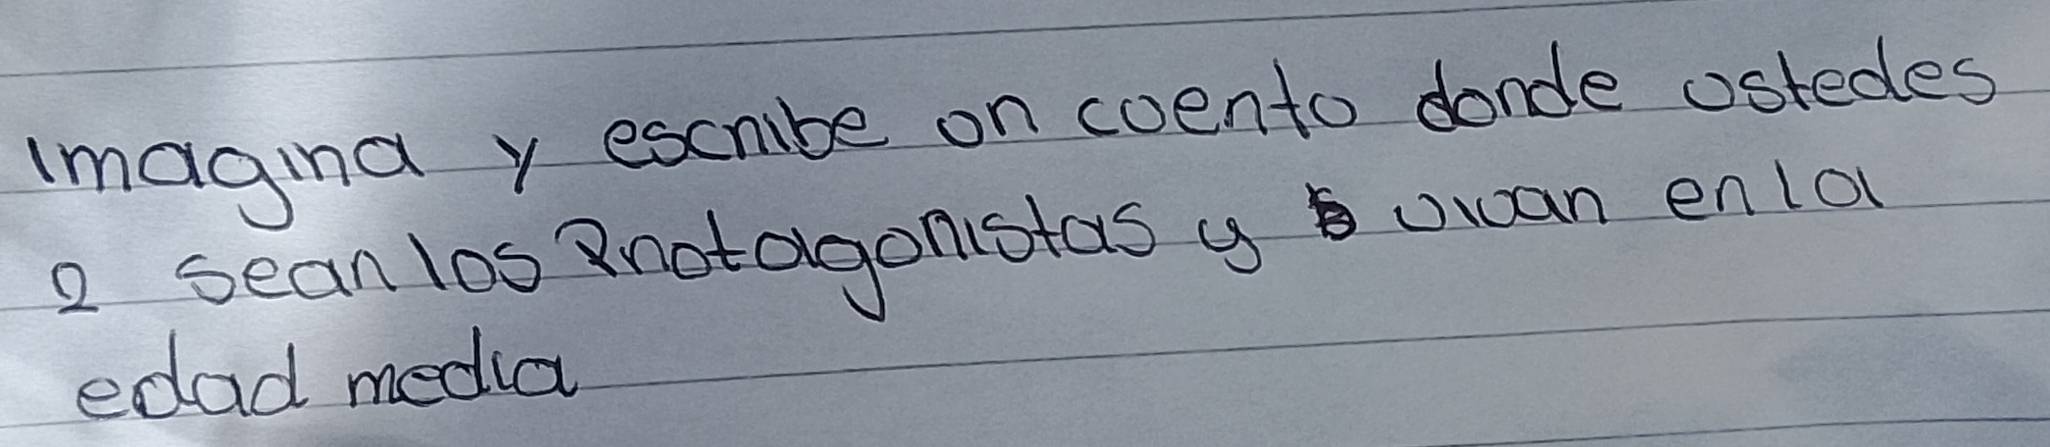 Imagina y escribe un cuento donde ustedes
2 sean los Protagonistas y vivan en la
edad media